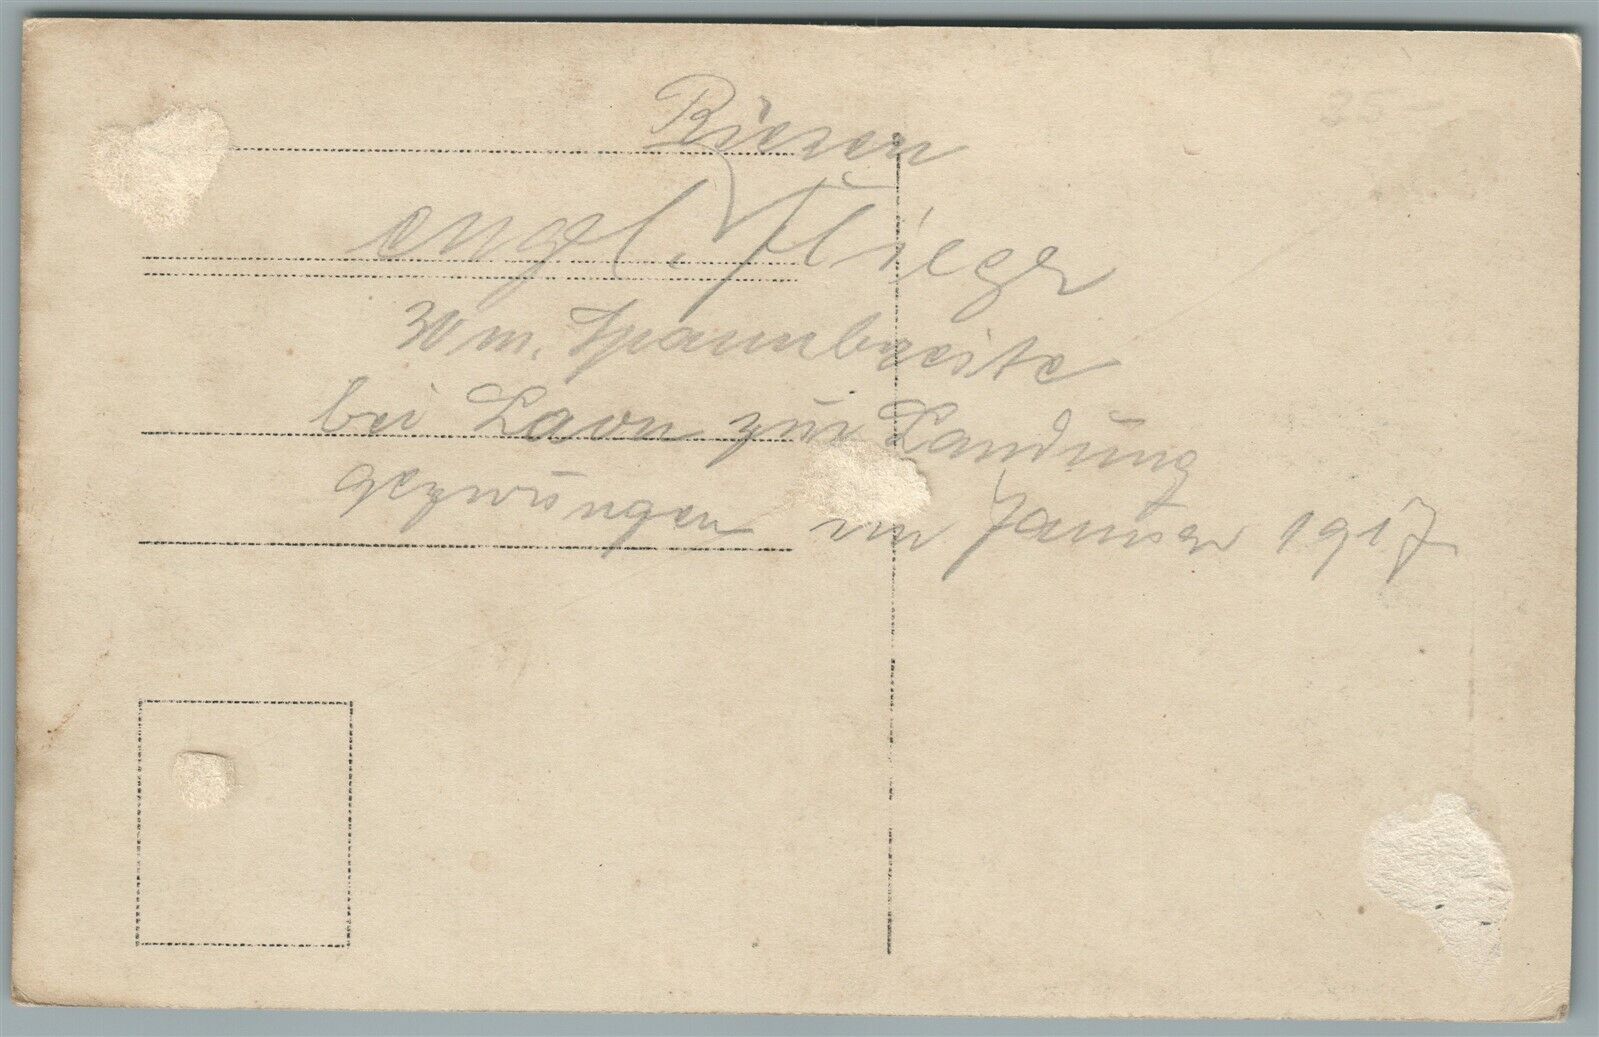 Riesen
engl. Flieger
30 m. Spannbreite
bei Laon zur Landung
gezwungen im Januar 1917
25